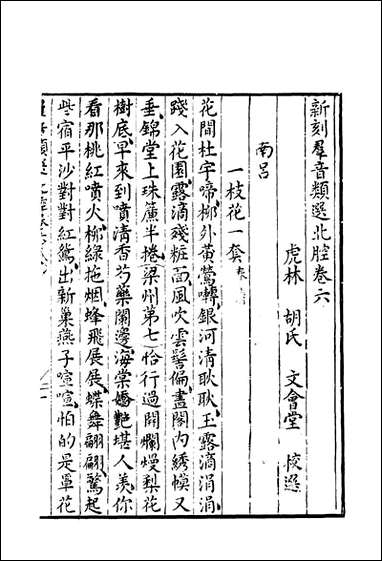 新刻羣音類選北腔卷六
虎林 胡氏 文會堂 校選
南呂
一枝花一套
花間杜宇啼柳外黃鶯囀銀河清耿耿玉露滴涓涓
踐入花園露滴殘粧面風吹雲髻偏畫閣內綉幙又
垂錦堂上珠簾半捲梁州第七恰行過開爛熳梨花
樹底早來到噴清香芍藥闌邊海棠嬌艷堪人羨你
看那桃紅噴火柳綠拖烟蜂飛展展蝶舞翩翩驚起
些宿平沙對對紅鴛出新巢燕子喧喧怕的是單花